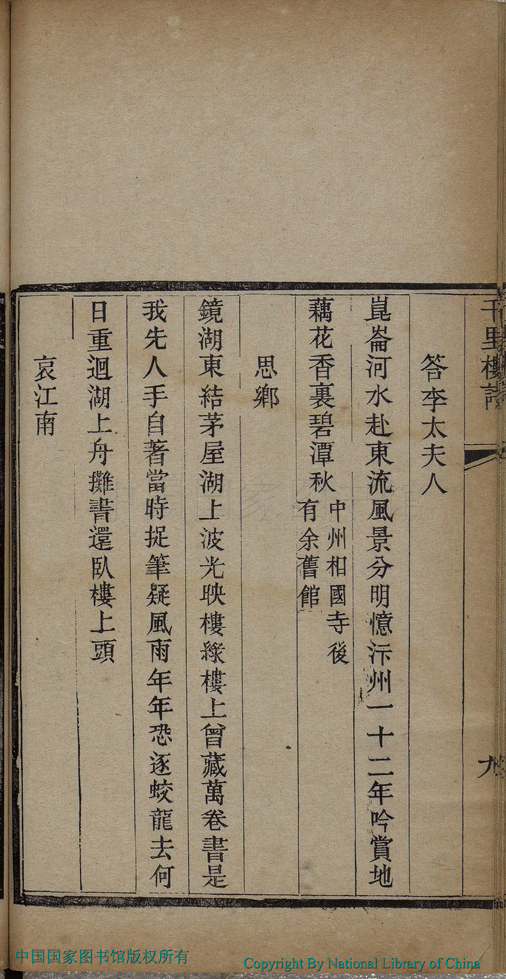 千里樓詩
九
答李太夫人
崑崙河水赴東流風景分明憶汴州一十二年吟賞地
藕花香裏碧潭秋
中州相國寺後
有余舊館
思鄉
鏡湖東結茅屋湖上波光映樓綠樓上曾藏萬卷書是
我先人手自著當時捉筆疑風雨年年恐逐蛟龍去何
日重迴湖上舟攤書還臥樓上頭
哀江南
中国国家图书馆版权所有
Copyright By National Library of China